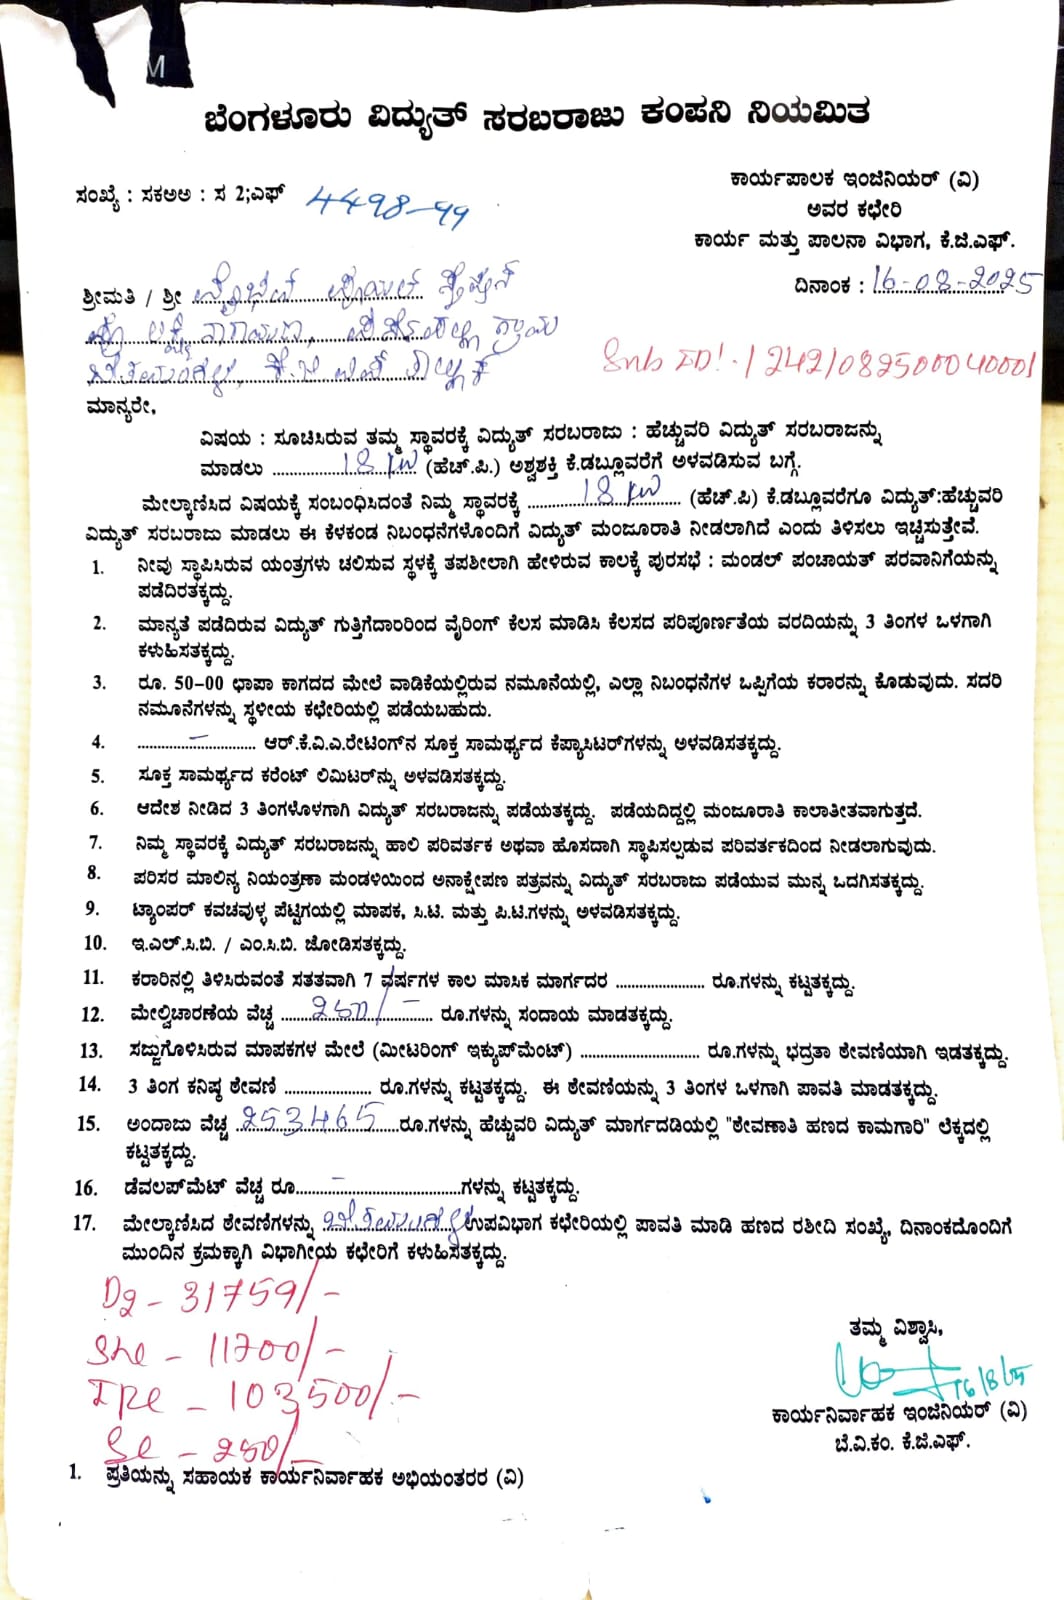 M
ಬೆಂಗಳೂರು ವಿದ್ಯುತ್ ಸರಬರಾಜು ಕಂಪನಿ ನಿಯಮಿತ
ಸಂಖ್ಯೆ : ಸಕಅಅ : ಸ 2;ಎಫ್ 4498-99
ಕಾರ್ಯಪಾಲಕ ಇಂಜಿನಿಯರ್ (ವಿ)
ಅವರ ಕಛೇರಿ
ಕಾರ್ಯ ಮತ್ತು ಪಾಲನಾ ವಿಭಾಗ, ಕೆ.ಜಿ.ಎಫ್.
ದಿನಾಂಕ : 16-08-2025
ಶ್ರೀಮತಿ / ಶ್ರೀ
ಲಕ್ಷ್ಮಿ ನಾರಾಯಣ, ಗ್ರಾಮ
ಬೇತಮಂಗಲ, ಕೆ.ಜಿ ಎಫ್ ತಾಲ್ಲೂಕ್
Snb ID:-12421082500040001
ಮಾನ್ಯರೇ,
ವಿಷಯ : ಸೂಚಿಸಿರುವ ತಮ್ಮ ಸ್ಥಾವರಕ್ಕೆ ವಿದ್ಯುತ್ ಸರಬರಾಜು : ಹೆಚ್ಚುವರಿ ವಿದ್ಯುತ್ ಸರಬರಾಜನ್ನು
ಮಾಡಲು ....18 KW.... (ಹೆಚ್.ಪಿ.) ಅಶ್ವಶಕ್ತಿ ಕೆ.ಡಬ್ಲೂವರೆಗೆ ಅಳವಡಿಸುವ ಬಗ್ಗೆ.
ಮೇಲ್ಕಾಣಿಸಿದ ವಿಷಯಕ್ಕೆ ಸಂಬಂಧಿಸಿದಂತೆ ನಿಮ್ಮ ಸ್ಥಾವರಕ್ಕೆ ....18 KW.... (ಹೆಚ್.ಪಿ) ಕೆ.ಡಬ್ಲೂವರೆಗೂ ವಿದ್ಯುತ್:ಹೆಚ್ಚುವರಿ
ವಿದ್ಯುತ್ ಸರಬರಾಜು ಮಾಡಲು ಈ ಕೆಳಕಂಡ ನಿಬಂಧನೆಗಳೊಂದಿಗೆ ವಿದ್ಯುತ್ ಮಂಜೂರಾತಿ ನೀಡಲಾಗಿದೆ ಎಂದು ತಿಳಿಸಲು ಇಚ್ಚಿಸುತ್ತೇವೆ.
1. ನೀವು ಸ್ಥಾಪಿಸಿರುವ ಯಂತ್ರಗಳು ಚಲಿಸುವ ಸ್ಥಳಕ್ಕೆ ತಪಶೀಲಾಗಿ ಹೇಳಿರುವ ಕಾಲಕ್ಕೆ ಪುರಸಭೆ : ಮಂಡಲ್ ಪಂಚಾಯತ್ ಪರವಾನಿಗೆಯನ್ನು
ಪಡೆದಿರತಕ್ಕದ್ದು.
2. ಮಾನ್ಯತೆ ಪಡೆದಿರುವ ವಿದ್ಯುತ್ ಗುತ್ತಿಗೆದಾರರಿಂದ ವೈರಿಂಗ್ ಕೆಲಸ ಮಾಡಿಸಿ ಕೆಲಸದ ಪರಿಪೂರ್ಣತೆಯ ವರದಿಯನ್ನು 3 ತಿಂಗಳ ಒಳಗಾಗಿ
ಕಳುಹಿಸತಕ್ಕದ್ದು.
3. ರೂ. 50-00 ಛಾಪಾ ಕಾಗದದ ಮೇಲೆ ವಾಡಿಕೆಯಲ್ಲಿರುವ ನಮೂನೆಯಲ್ಲಿ, ಎಲ್ಲಾ ನಿಬಂಧನೆಗಳ ಒಪ್ಪಿಗೆಯ ಕರಾರನ್ನು ಕೊಡುವುದು. ಸದರಿ
ನಮೂನೆಗಳನ್ನು ಸ್ಥಳೀಯ ಕಛೇರಿಯಲ್ಲಿ ಪಡೆಯಬಹುದು.
4. ....-.... ಆರ್.ಕೆ.ವಿ.ಎ.ರೇಟಿಂಗ್‌ನ ಸೂಕ್ತ ಸಾಮರ್ಥ್ಯದ ಕೆಪ್ಯಾಸಿಟರ್‌ಗಳನ್ನು ಅಳವಡಿಸತಕ್ಕದ್ದು.
5. ಸೂಕ್ತ ಸಾಮರ್ಥ್ಯದ ಕರೆಂಟ್ ಲಿಮಿಟರ್‌ನ್ನು ಅಳವಡಿಸತಕ್ಕದ್ದು.
6. ಆದೇಶ ನೀಡಿದ 3 ತಿಂಗಳೊಳಗಾಗಿ ವಿದ್ಯುತ್ ಸರಬರಾಜನ್ನು ಪಡೆಯತಕ್ಕದ್ದು. ಪಡೆಯದಿದ್ದಲ್ಲಿ ಮಂಜೂರಾತಿ ಕಾಲಾತೀತವಾಗುತ್ತದೆ.
7. ನಿಮ್ಮ ಸ್ಥಾವರಕ್ಕೆ ವಿದ್ಯುತ್ ಸರಬರಾಜನ್ನು ಹಾಲಿ ಪರಿವರ್ತಕ ಅಥವಾ ಹೊಸದಾಗಿ ಸ್ಥಾಪಿಸಲ್ಪಡುವ ಪರಿವರ್ತಕದಿಂದ ನೀಡಲಾಗುವುದು.
8. ಪರಿಸರ ಮಾಲಿನ್ಯ ನಿಯಂತ್ರಣಾ ಮಂಡಳಿಯಿಂದ ಅನಾಕ್ಷೇಪಣ ಪತ್ರವನ್ನು ವಿದ್ಯುತ್ ಸರಬರಾಜು ಪಡೆಯುವ ಮುನ್ನ ಒದಗಿಸತಕ್ಕದ್ದು.
9. ಟ್ಯಾಂಪರ್ ಕವಚವುಳ್ಳ ಪೆಟ್ಟಿಗೆಯಲ್ಲಿ ಮಾಪಕ, ಸಿ.ಟಿ. ಮತ್ತು ಪಿ.ಟಿ.ಗಳನ್ನು ಅಳವಡಿಸತಕ್ಕದ್ದು.
10. ಇ.ಎಲ್.ಸಿ.ಬಿ. / ಎಂ.ಸಿ.ಬಿ. ಜೋಡಿಸತಕ್ಕದ್ದು.
11. ಕರಾರಿನಲ್ಲಿ ತಿಳಿಸಿರುವಂತೆ ಸತತವಾಗಿ 7 ವರ್ಷಗಳ ಕಾಲ ಮಾಸಿಕ ಮಾರ್ಗದರ ........ ರೂ.ಗಳನ್ನು ಕಟ್ಟತಕ್ಕದ್ದು.
12. ಮೇಲ್ವಿಚಾರಣೆಯ ವೆಚ್ಚ ....250/-.... ರೂ.ಗಳನ್ನು ಸಂದಾಯ ಮಾಡತಕ್ಕದ್ದು.
13. ಸಜ್ಜುಗೊಳಿಸಿರುವ ಮಾಪಕಗಳ ಮೇಲೆ (ಮೀಟರಿಂಗ್ ಇಕ್ಯುಪ್‌ಮೆಂಟ್) ........ ರೂ.ಗಳನ್ನು ಭದ್ರತಾ ಠೇವಣಿಯಾಗಿ ಇಡತಕ್ಕದ್ದು.
14. 3 ತಿಂಗ ಕನಿಷ್ಠ ಠೇವಣಿ ........ ರೂ.ಗಳನ್ನು ಕಟ್ಟತಕ್ಕದ್ದು. ಈ ಠೇವಣಿಯನ್ನು 3 ತಿಂಗಳ ಒಳಗಾಗಿ ಪಾವತಿ ಮಾಡತಕ್ಕದ್ದು.
15. ಅಂದಾಜು ವೆಚ್ಚ ..253465..ರೂ.ಗಳನ್ನು ಹೆಚ್ಚುವರಿ ವಿದ್ಯುತ್ ಮಾರ್ಗದಡಿಯಲ್ಲಿ "ಠೇವಣಾತಿ ಹಣದ ಕಾಮಗಾರಿ" ಲೆಕ್ಕದಲ್ಲಿ
ಕಟ್ಟತಕ್ಕದ್ದು.
16. ಡೆವಲಪ್‌ಮೆಟ್ ವೆಚ್ಚ ರೂ....-....ಗಳನ್ನು ಕಟ್ಟತಕ್ಕದ್ದು.
17. ಮೇಲ್ಕಾಣಿಸಿದ ಠೇವಣಿಗಳನ್ನು ಬೇತಮಂಗಲ ಉಪವಿಭಾಗ ಕಛೇರಿಯಲ್ಲಿ ಪಾವತಿ ಮಾಡಿ ಹಣದ ರಶೀದಿ ಸಂಖ್ಯೆ, ದಿನಾಂಕದೊಂದಿಗೆ
ಮುಂದಿನ ಕ್ರಮಕ್ಕಾಗಿ ವಿಭಾಗೀಯ ಕಛೇರಿಗೆ ಕಳುಹಿಸತಕ್ಕದ್ದು.
D2 - 31759/-
She - 11700/-
IRe - 103500/-
Se - 250/-
ತಮ್ಮ ವಿಶ್ವಾಸಿ,
16/8/25
ಕಾರ್ಯನಿರ್ವಾಹಕ ಇಂಜಿನಿಯರ್ (ವಿ)
ಬೆ.ವಿ.ಕಂ. ಕೆ.ಜಿ.ಎಫ್.
1. ಪ್ರತಿಯನ್ನು ಸಹಾಯಕ ಕಾರ್ಯನಿರ್ವಾಹಕ ಅಭಿಯಂತರರ (ವಿ)